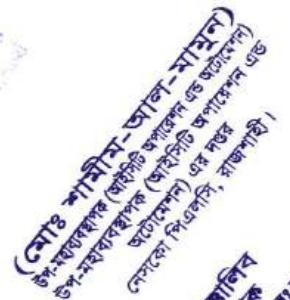 (মোঃ শামীম-আল-মামুন)
উপ-মহাব্যবস্থাপক (আইসিটি অপারেশন এন্ড অটোমেশন)
উপ-মহাব্যবস্থাপক (আইসিটি অপারেশন এন্ড
অটোমেশন) এর দপ্তর
নেসকো পিএলসি, রাজশাহী।